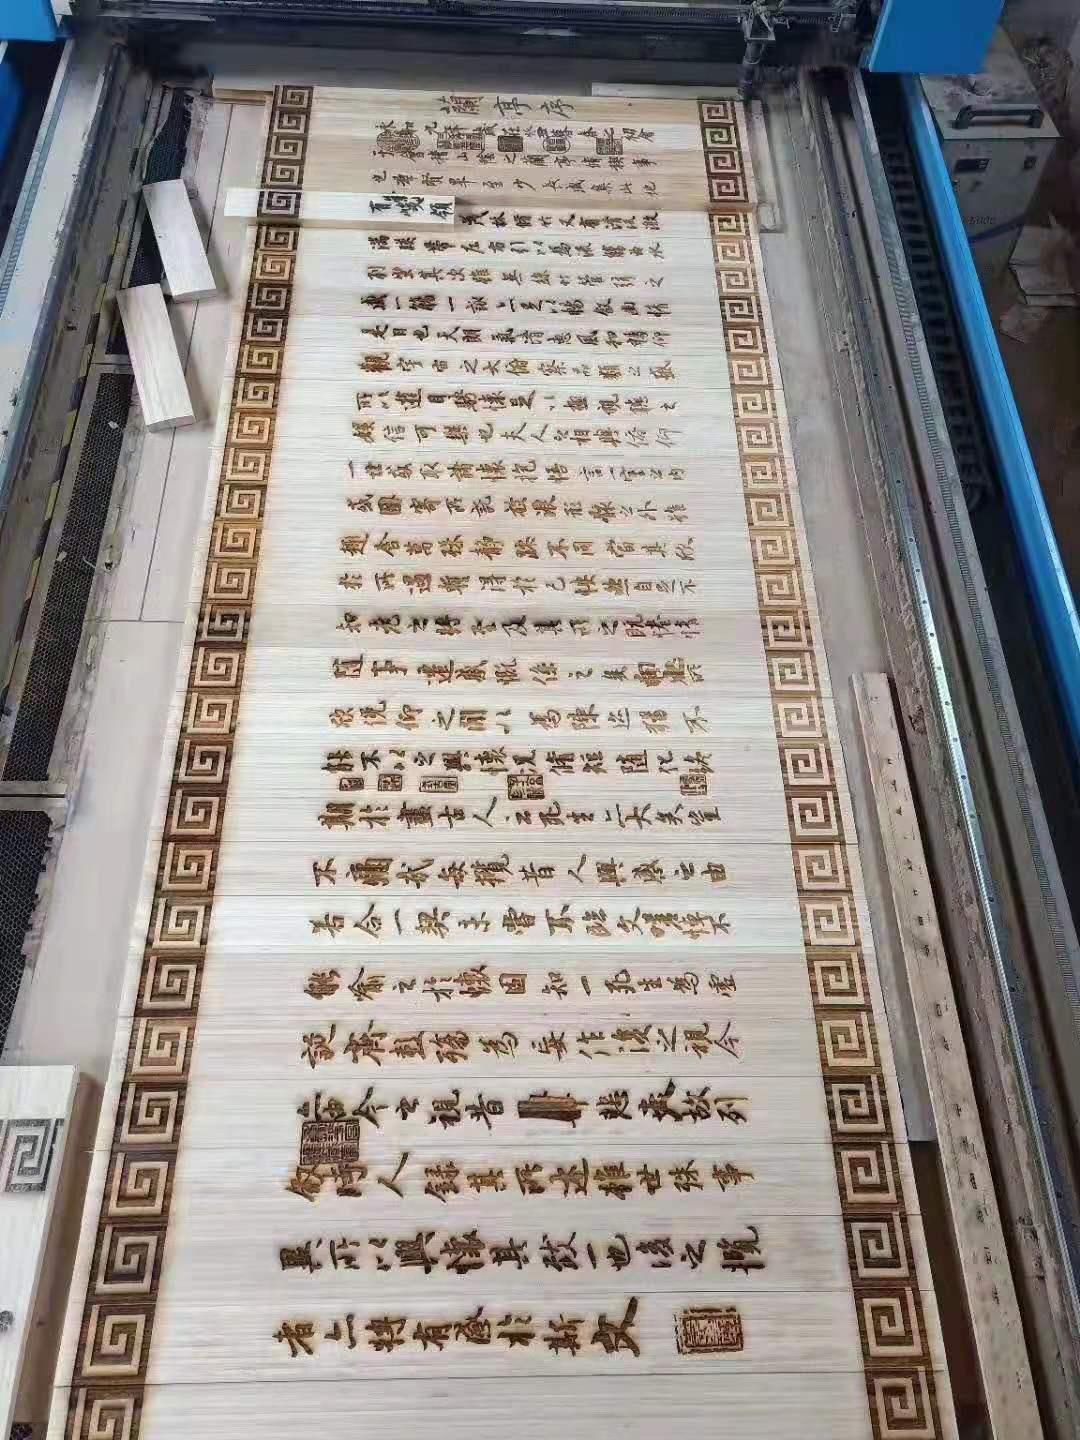 蘭亭序
永和九年歲在癸丑暮春之初會
于會稽山陰之蘭亭脩稧事
也羣賢畢至少長咸集此地
有峻領茂林脩竹又有清流激
湍暎帶左右引以為流觴曲水
列坐其次雖無絲竹管弦之
盛一觴一詠亦足以暢敘幽情
是日也天朗氣清惠風和暢仰
觀宇宙之大俯察品類之盛
所以遊目騁懷足以極視聽之
娛信可樂也夫人之相與俯仰
一世或取諸懷抱悟言一室之內
或因寄所託放浪形骸之外雖
趣舍萬殊靜躁不同當其欣
於所遇暫得於己快然自足不
知老之將至及其所之既惓情
隨事遷感慨係之矣向之所
欣俛仰之間以為陳迹猶不
能不以之興懷況脩短隨化終
期於盡古人云死生亦大矣豈
不痛哉每攬昔人興感之由
若合一契未嘗不臨文嗟悼不
能喻之於懷固知一死生為虛
誕齊彭殤為妄作後之視今
亦由今之視昔悲夫故列
敘時人錄其所述雖世殊事
異所以興懷其致一也後之攬
者亦將有感於斯文